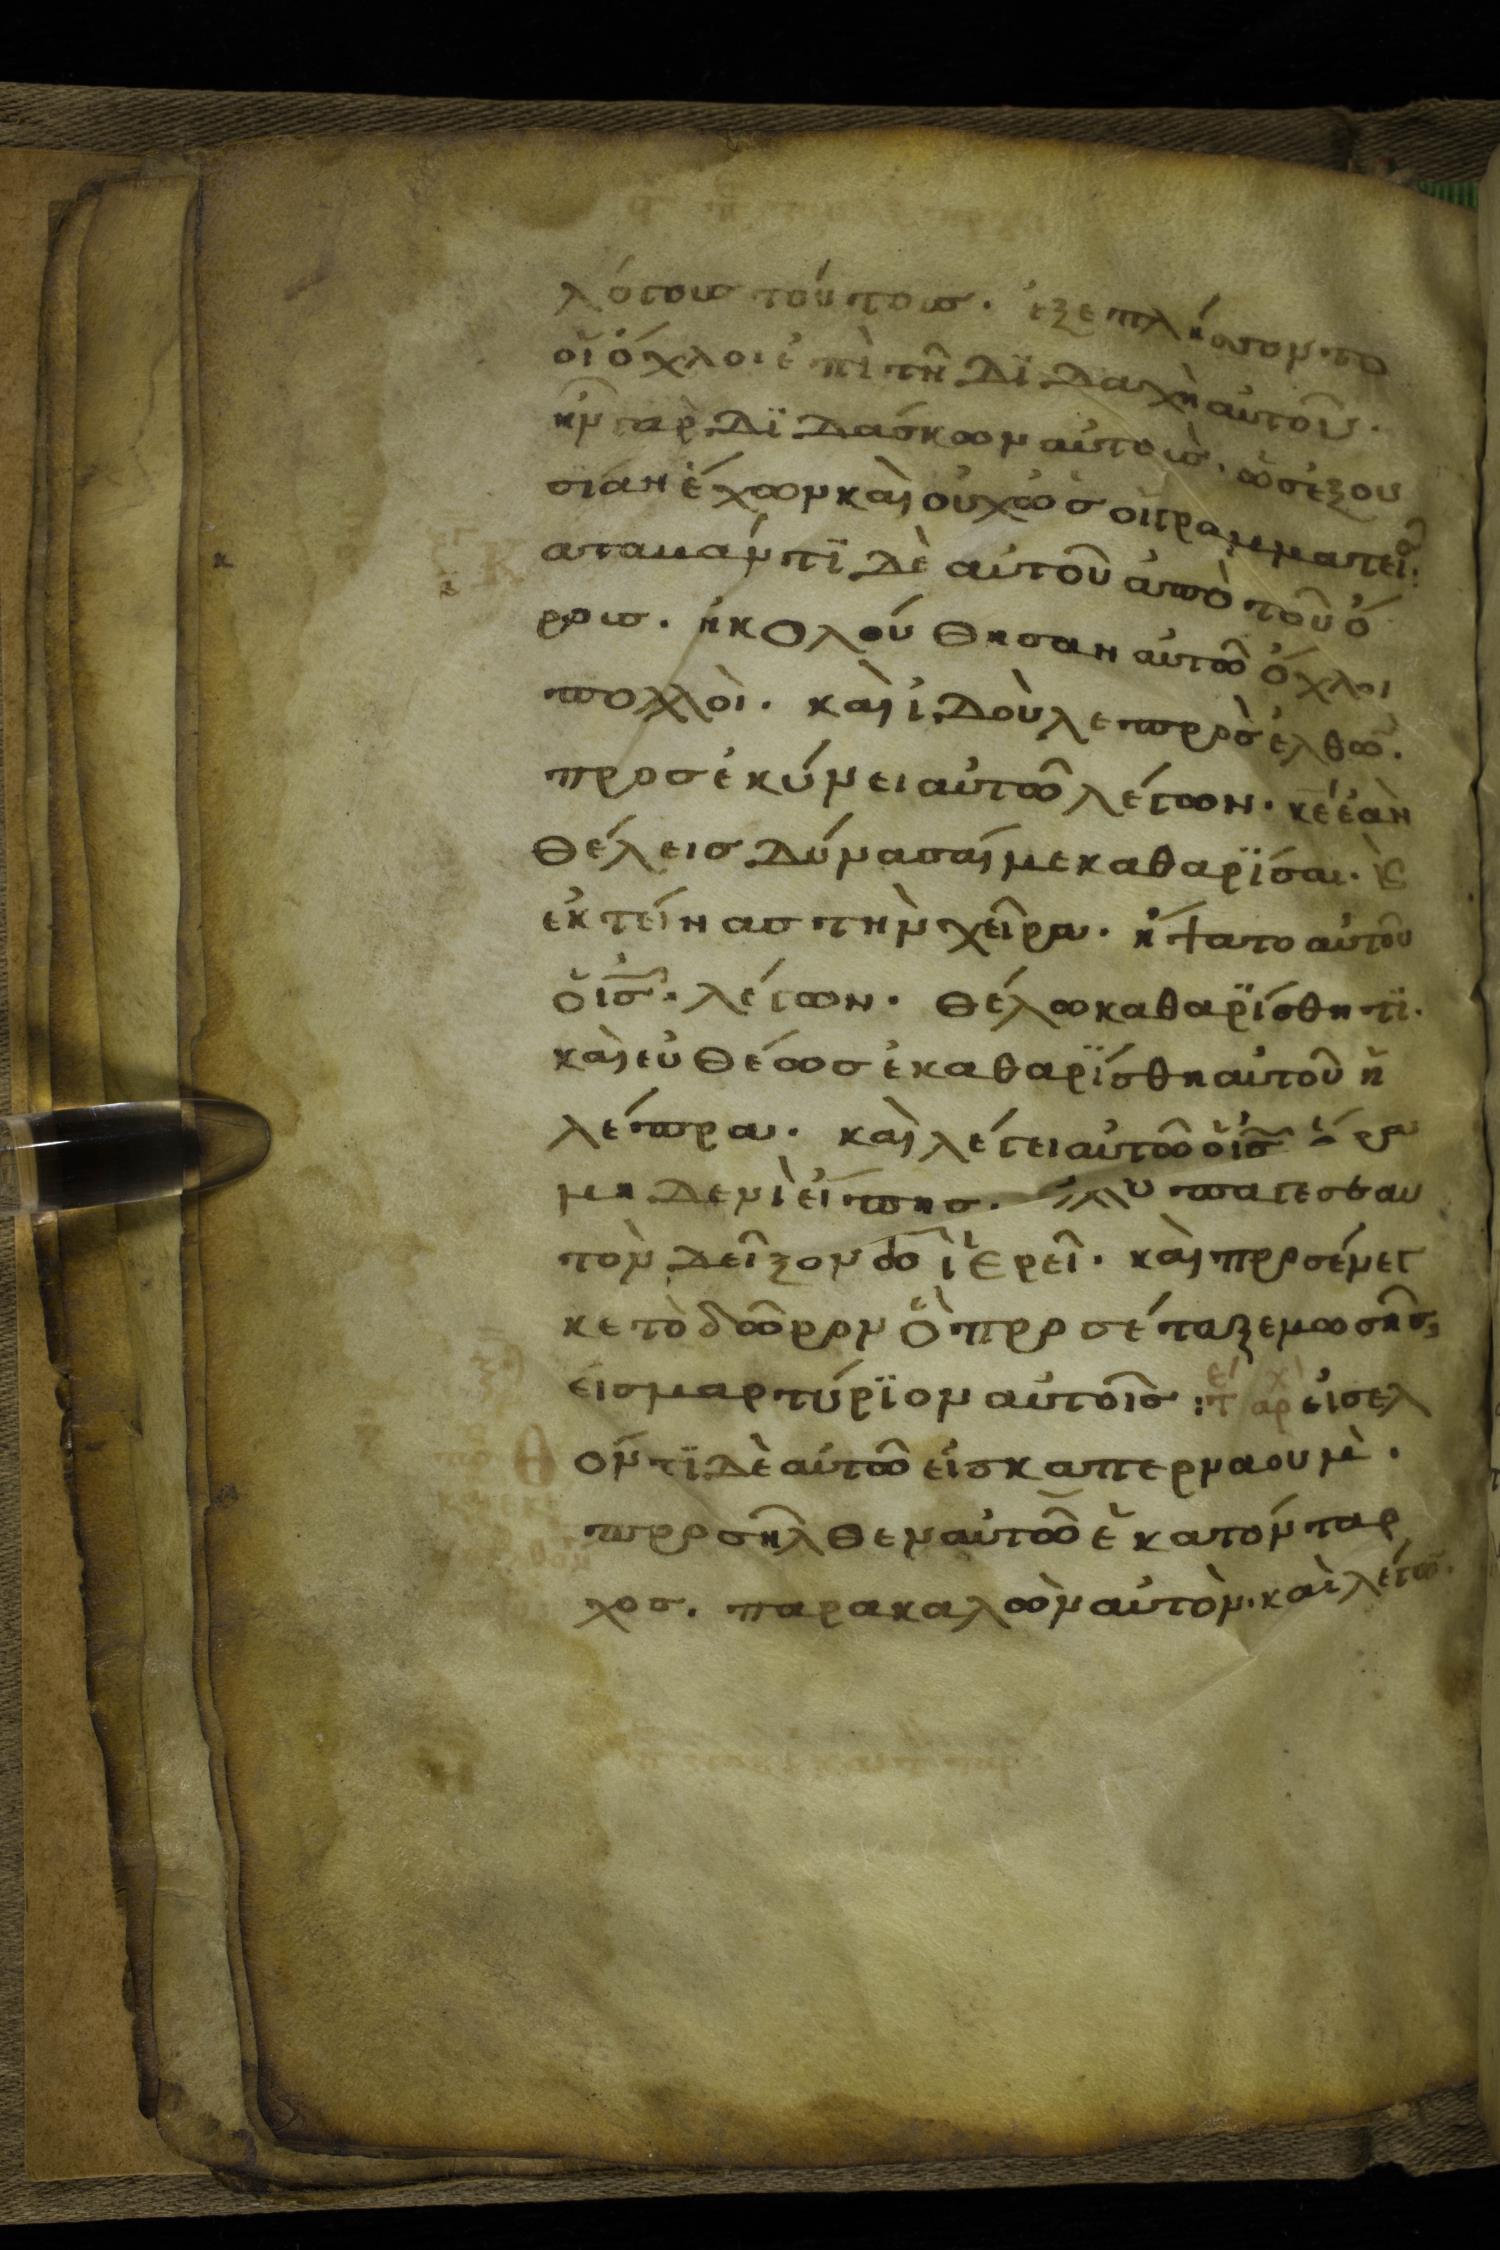 λόγους τούτους. ἐξεπλήσσοντο
οἱ ὄχλοι ἐπὶ τῆ διδαχῆ αὐτοῦ.
ἦν γὰρ διδάσκων αὐτοὺς. ὡσ ἐξου
σίαν ἔχων καὶ οὐχ ὡσ οἱ γραμματεῖσ:
καταβάντϊ δὲ αὐτοῦ ἀπὸ τοῦ ὄ
ρους. ἠκολούθησαν αὐτῶ ὄχλοι
πολλοὶ. καὶ ἰδοὺ λεπρὸσ ἐλθῶ̅.
προσἐκύνει αὐτῶ λέγων. κ̅ε̅ ἐὰν
θέλεισ δύνασαί με καθαρϊσαι. Ϗ
ἐκτείνασ τὴν χεῖρα. ἥψατο αὐτοῦ
ὁ ι̅σ̅. λέγων. θέλω καθαρϊσθητϊ.
καὶ εὐθέωσ ἐκαθαρϊσθη αὐτοῦ ἡ
λέπρα. καὶ λέγει αὐτῶ ὁ ι̅σ̅ ὅρα
μηδενὶ εἴπησ. ὕπαγε σεαυ
τὸν δεῖξον τῶ ἱερεῖ. καὶ προσένεγ
κε τὸ δῶρον ὃ προσέταξε μωσῆσ,
εἰσ μαρτύρϊον αὐτοῖσ: εἰσελ
θόντϊ δὲ αὐτῶ εἰσ καπερναουμ̀.
προσῆλθεν αὐτῶ ἑκατόνταρ
χοσ. παρακαλῶν αὐτὸν. καὶ λέγω̅.